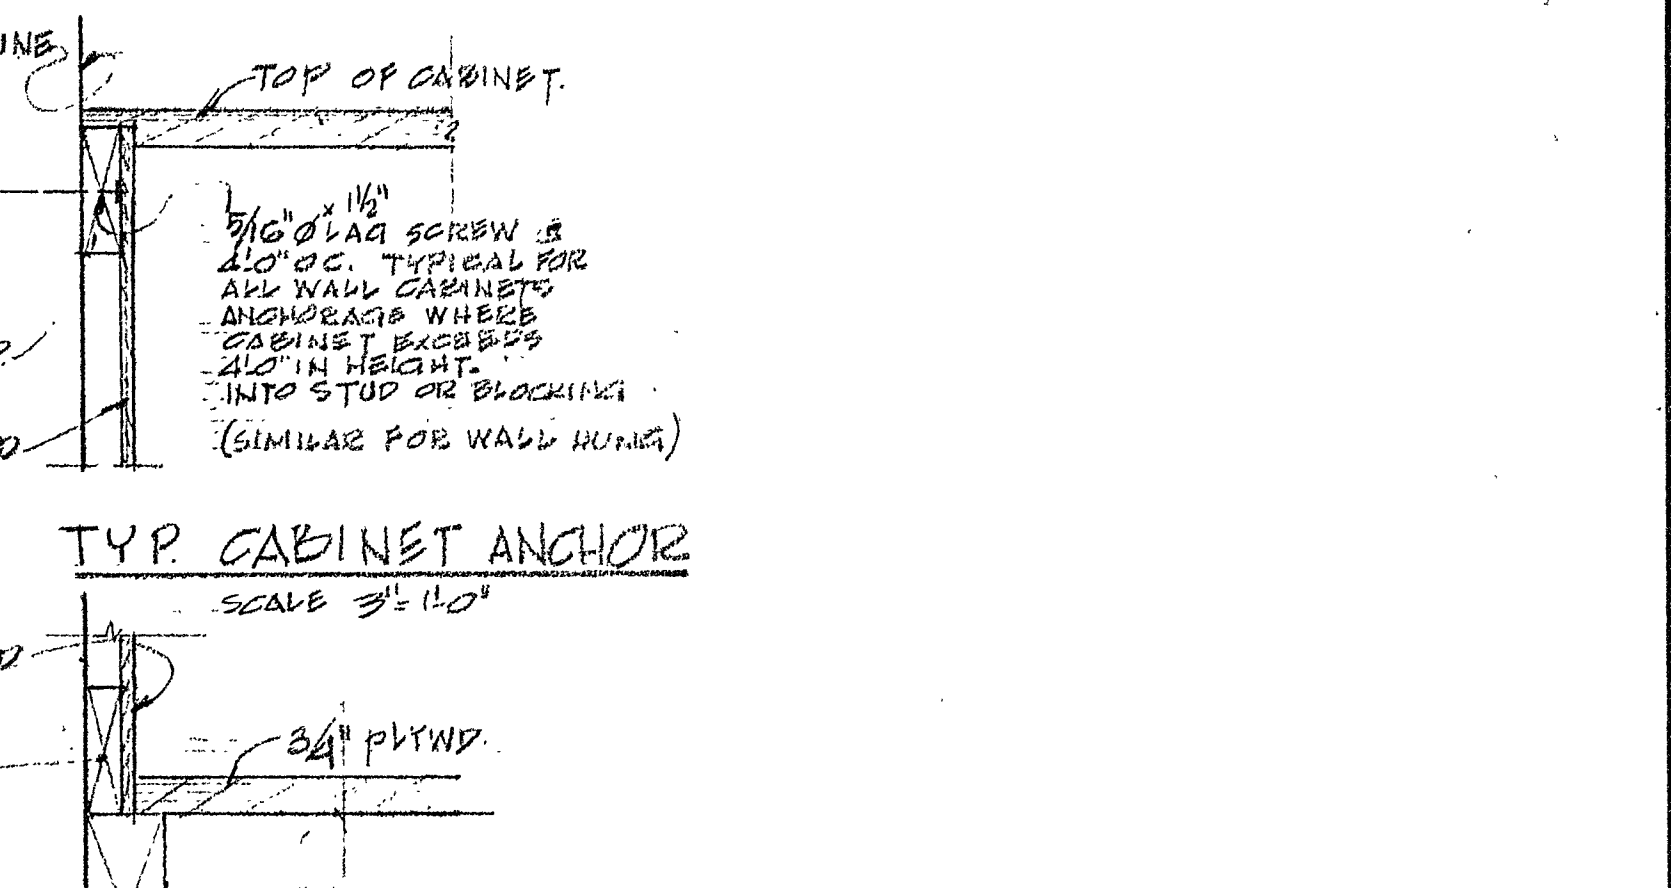 TOP OF CABINET.
5/16"Ø x 1 1/2" LAG SCREW @
4'-0" O.C. TYPICAL FOR
ALL WALL CABINETS
ANCHORAGE WHERE
CABINET EXCEEDS
4'-0" IN HEIGHT.
INTO STUD OR BLOCKING
(SIMILAR FOR WALL HUNG)
TYP. CABINET ANCHOR
SCALE 3"=1'-0"
3/4" PLYWD.